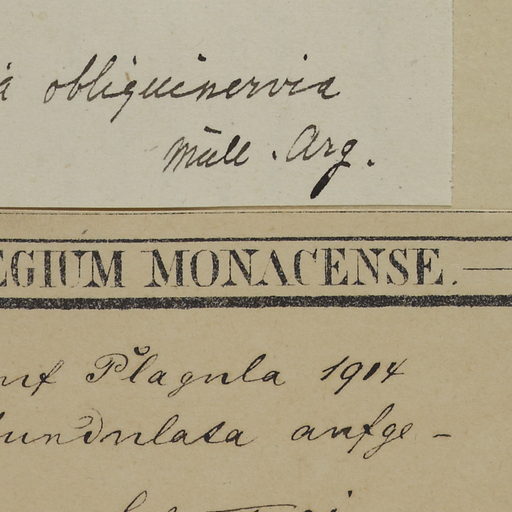 a obliquinervia
Müll. Arg.
EGIUM MONACENSE.
auf Plagula 1914
undulata aufge-